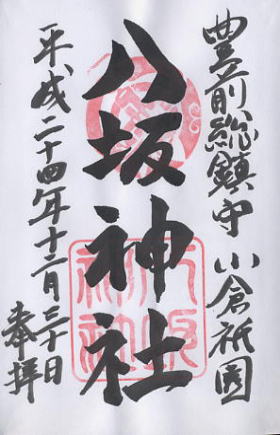 豊前総鎮守 小倉祇園
八坂神社
平成二十四年十二月三十日
奉拝
八坂
神社